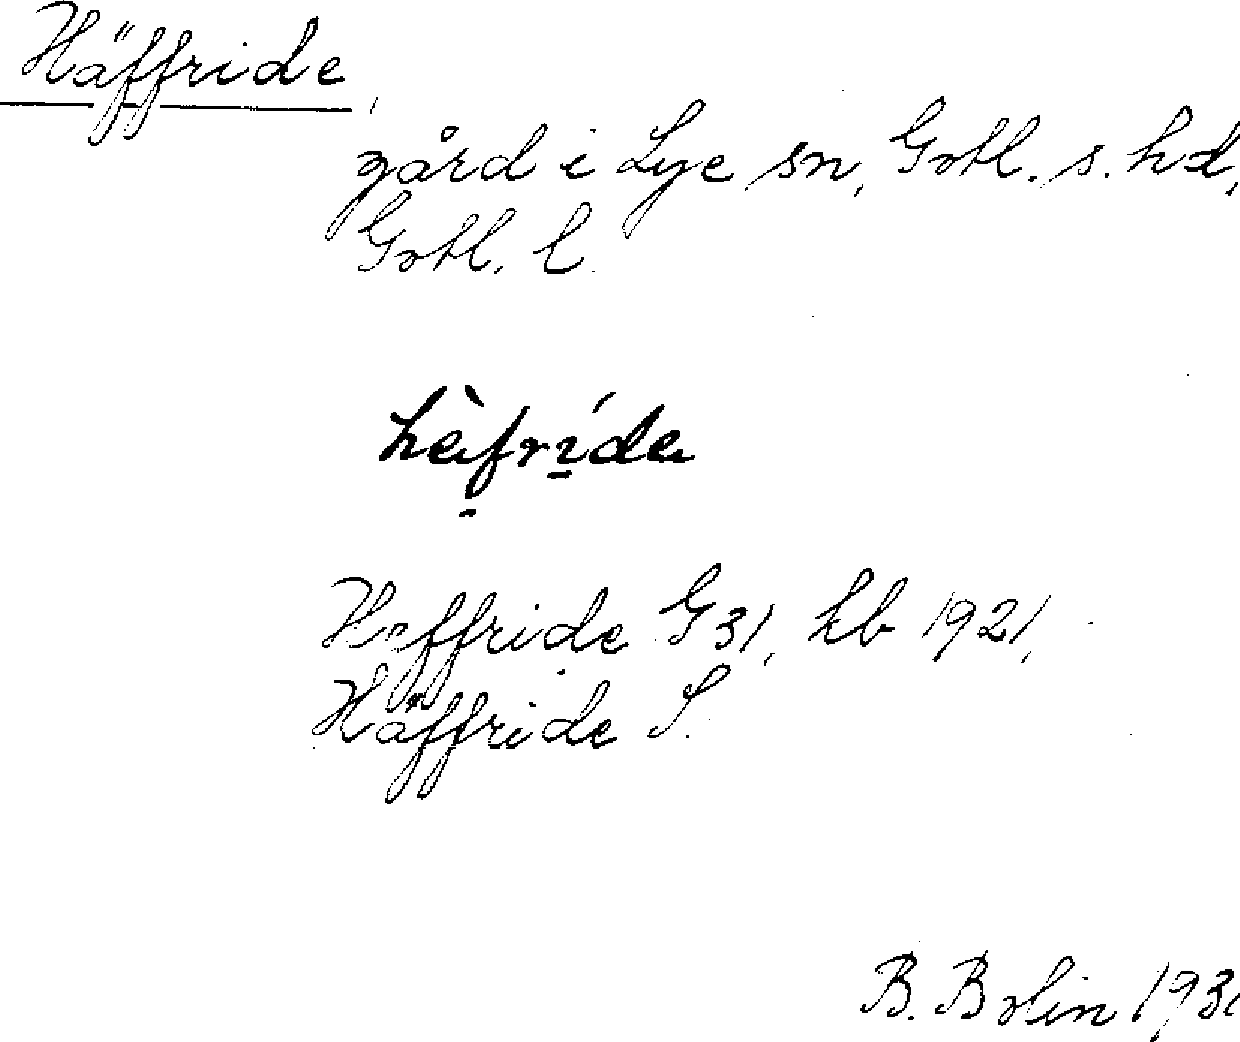 Häffride,
gård i Lye sn, Gotl. s. hd,
Gotl. l.
hèfrída
Heffride G 31, hb 1921,
Häffride S.
B. Bolin